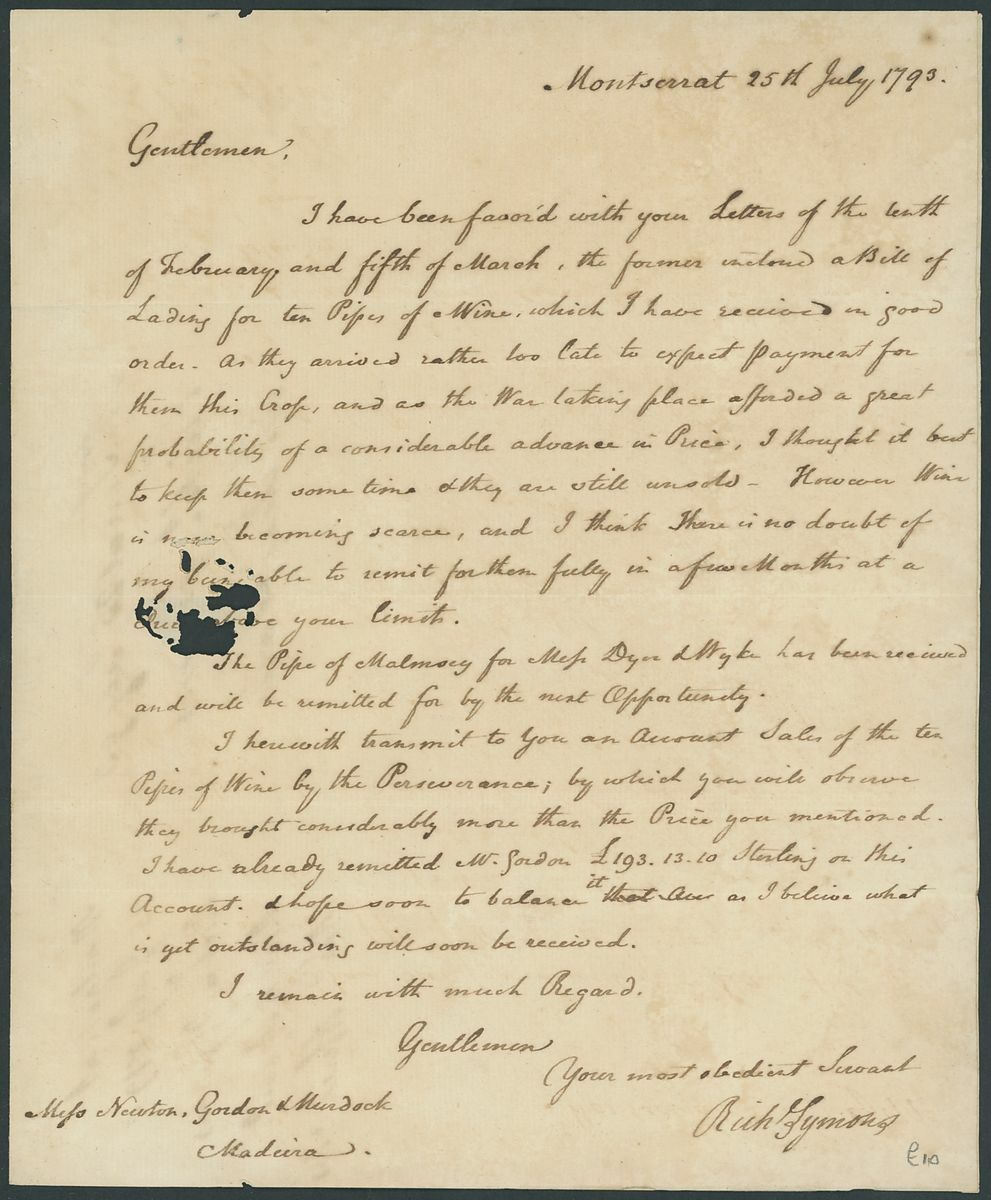 Montserrat 25th July, 1793.
Gentlemen,
I have been favor'd with your Letters of the tenth
of February, and fifth of March, the former inclosed a Bill of
Lading for ten Pipes of Wine, which I have received in good
order. As they arrived rather too late to expect Payment for
them this Crop, and as the War taking place afforded a great
probability of a considerable advance in Price, I thought it best
to keep them some time & they are still unsold - However Wine
is now becoming scarce, and I think there is no doubt of
my being able to remit for them fully in a few Months at a
above your limits.
The Pipe of Malmsey for Mess Dyer & Wyke has been received
and will be remitted for by the next Opportunity.
I herewith transmit to You an Account Sales of the ten
Pipes of Wine by the Perseverance; by which you will observe
they brought considerably more than the Price you mentioned.
I have already remitted Mr. Gordon £193.13.10 Sterling on this
Account. & hope soon to balance it that Acc as I believe what
is yet outstanding will soon be received.
I remain with much Regard.
Gentlemen
Your most obedient Servant
Richd Symons
Mess Newton, Gordon & Murdock
Madeira.
£10